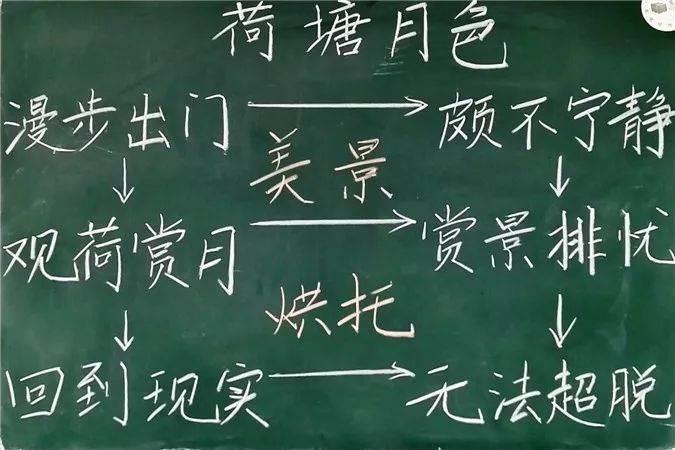 荷塘月色
漫步出门 → 颇不宁静
美景
↓ ↓
观荷赏月 → 赏景排忧
烘托
↓ ↓
回到现实 → 无法超脱